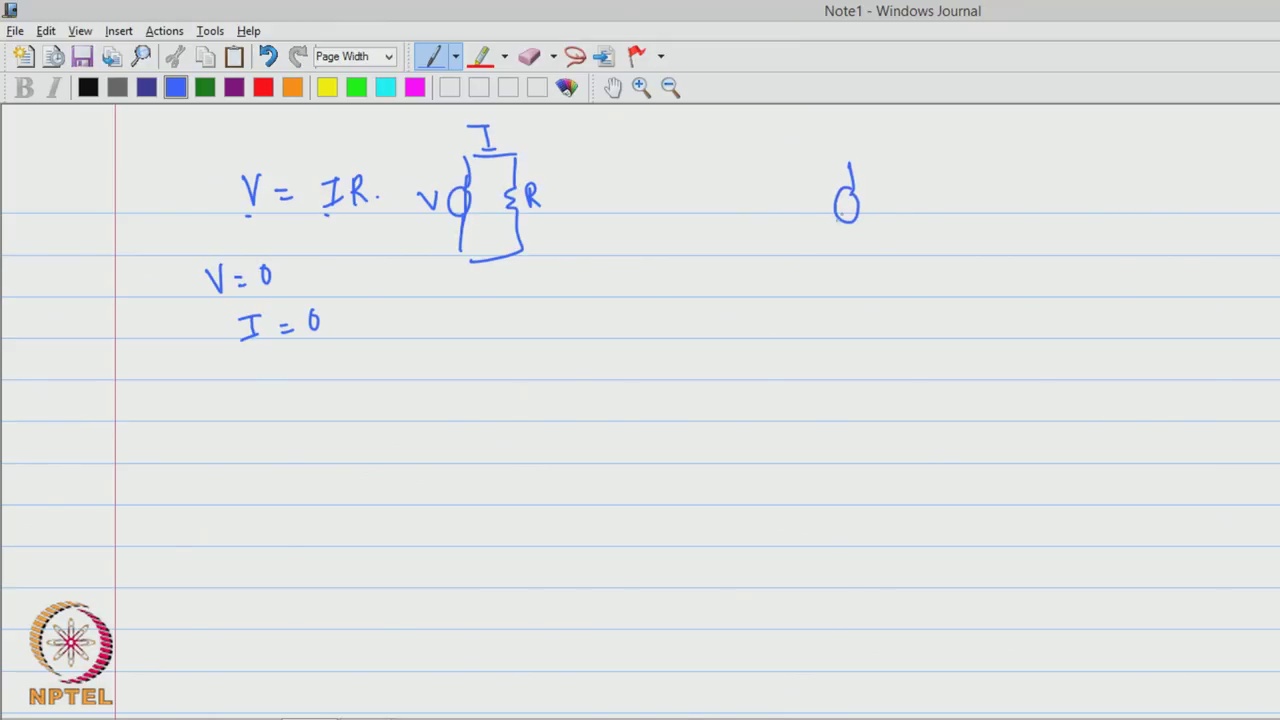 Note1 - Windows Journal
File Edit View Insert Actions Tools Help
Page Width
B I
I
V = IR.
V R
V = 0
I = 0
NPTEL